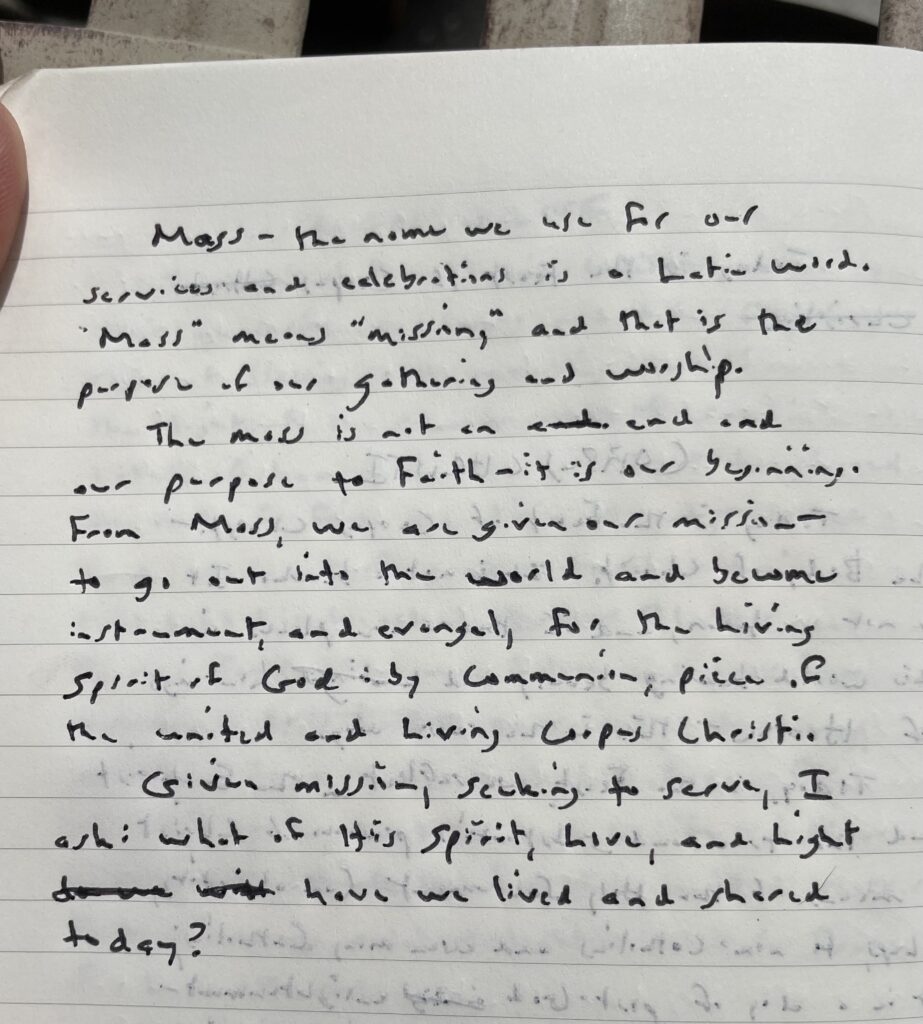 Mass - the name we use for our
services and celebrations is a Latin word.
"Mass" means "mission," and that is the
purpose of our gathering and worship.
The mass is not an end and
our purpose to Faith - it is our beginning.
From Mass, we are given our mission -
to go out into the world and become
instrument, and evangel, for the Living
Spirit of God: by Communion, piece of
the united and Living Corpus Christi.
Given mission, seeking to serve, I
ask: what of His Spirit, Love, and Light
have we lived and shared
today?